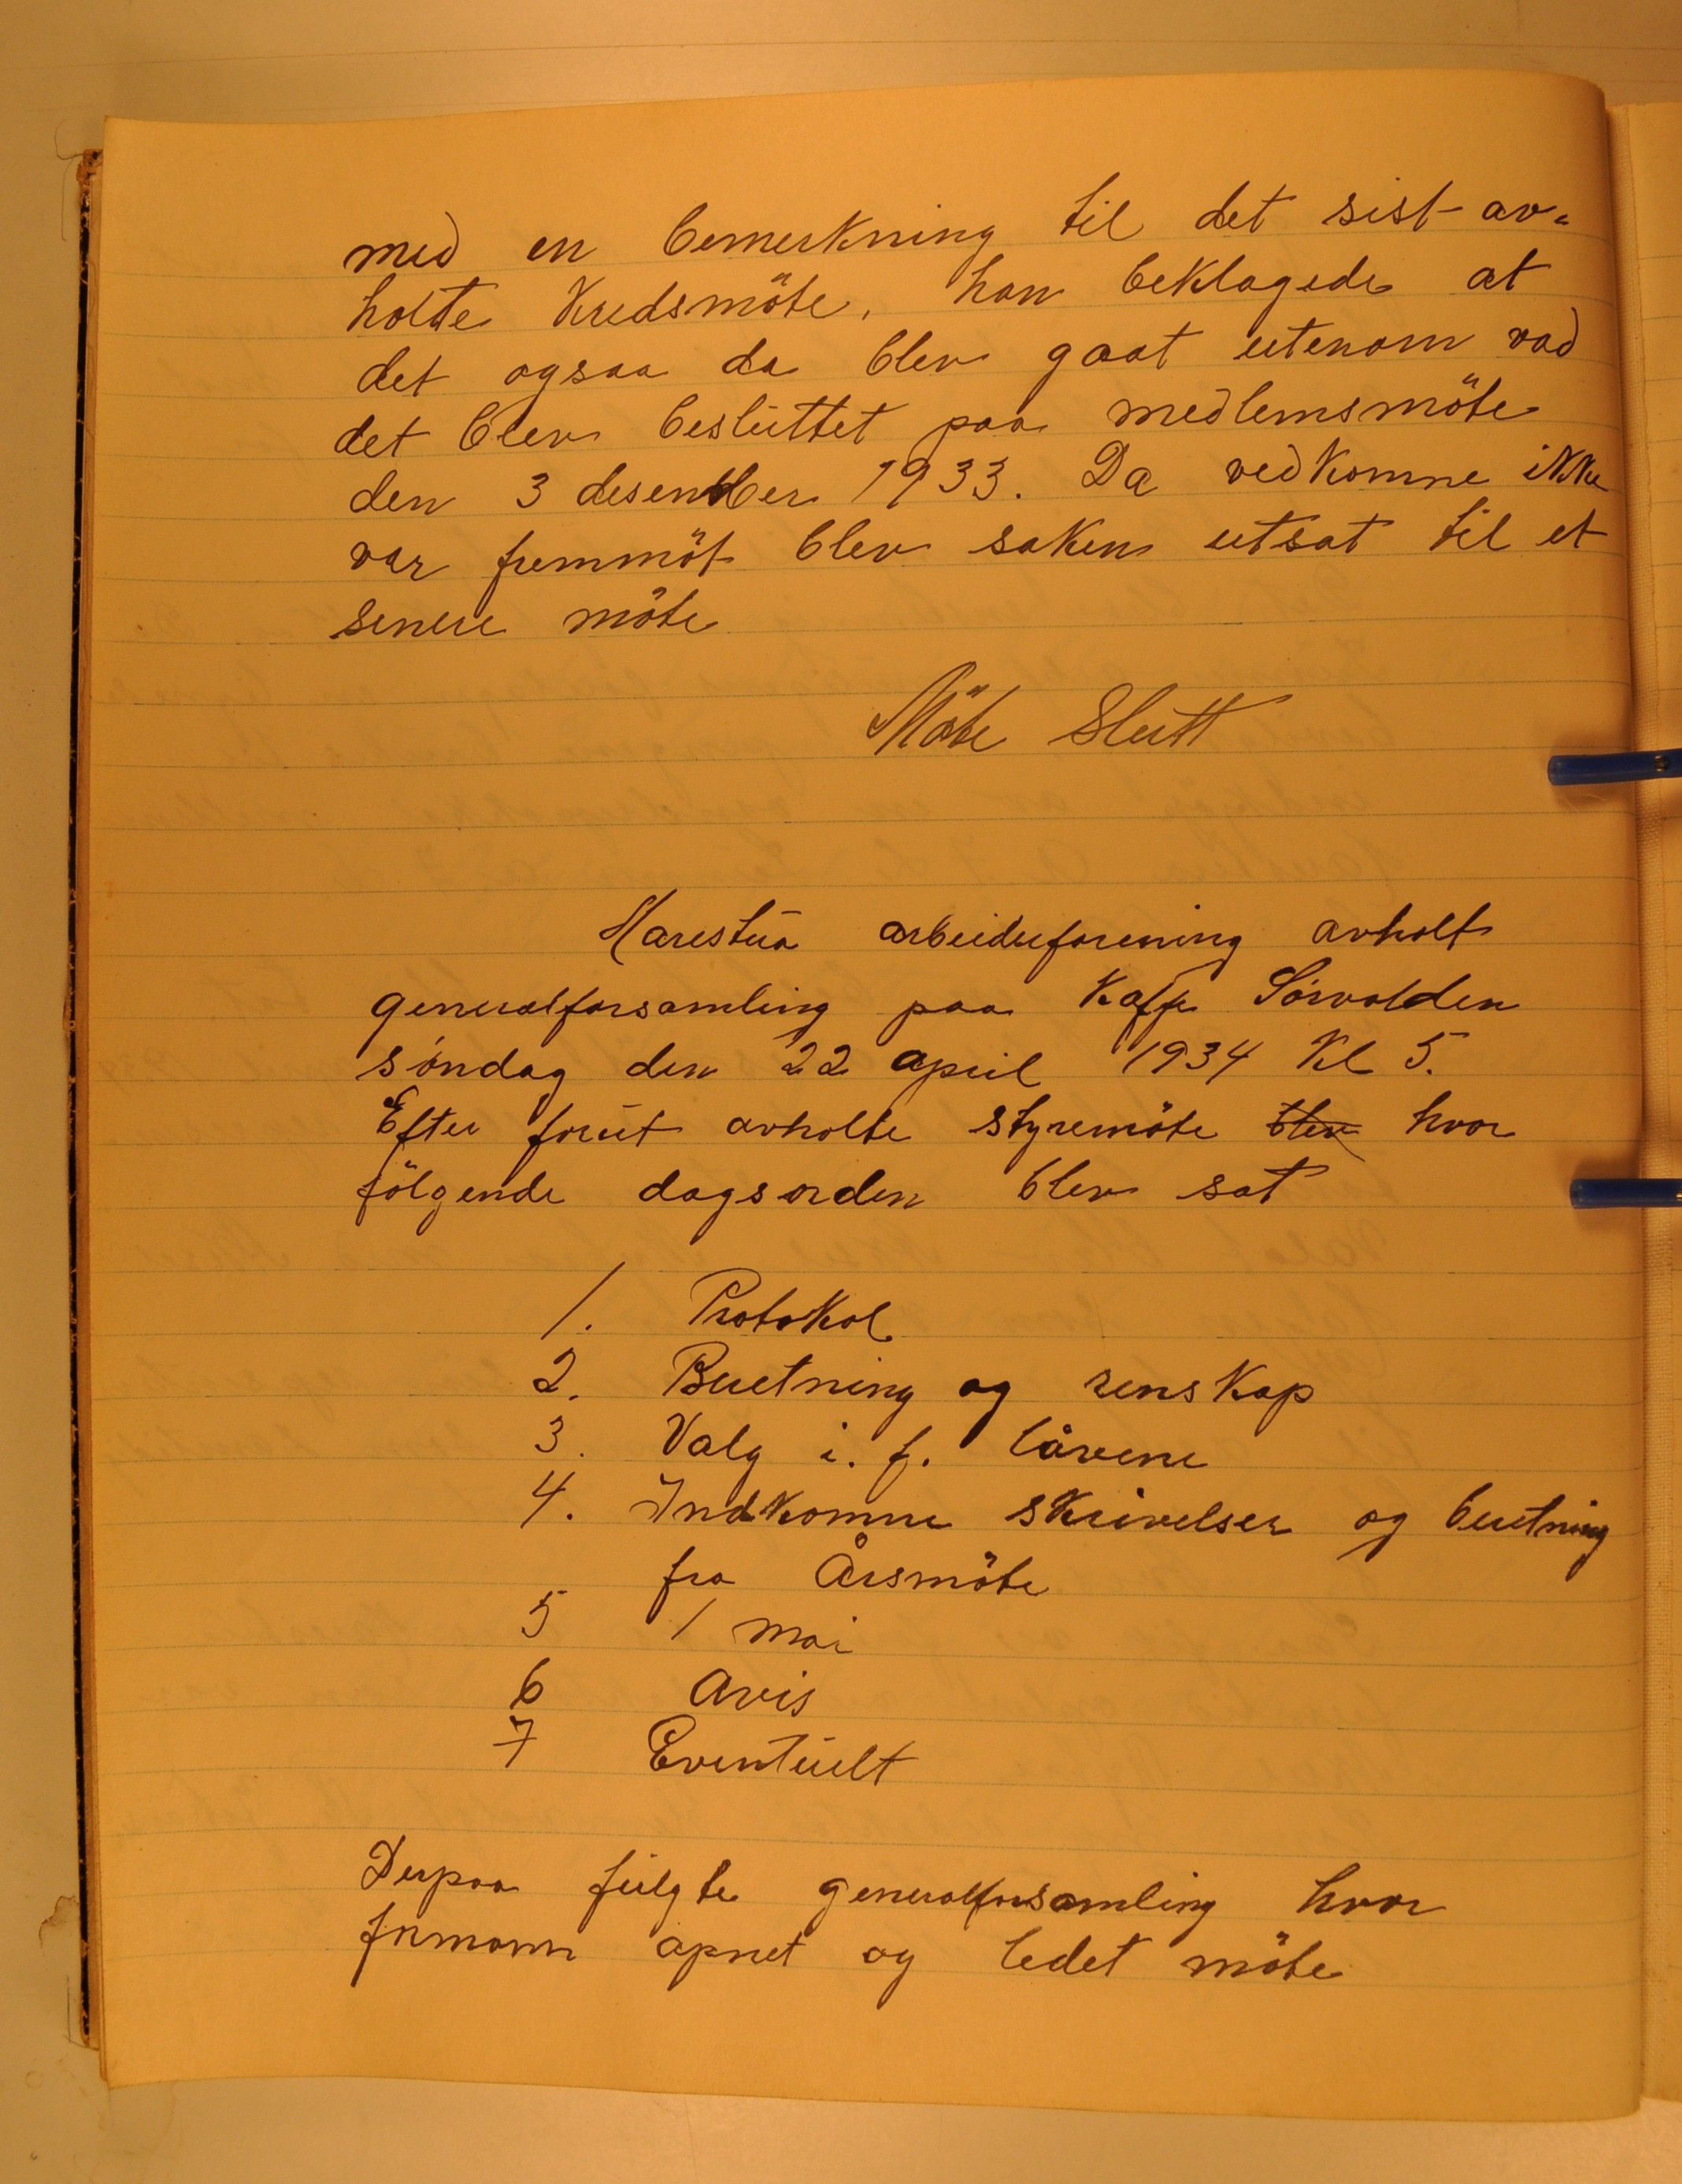 med en bemerkning til det sist av-
holte Kredsmöte, han beklagede at
det ogsaa da blev gaat utenom vad
det blev besluttet paa medlemsmöte
den 3 desember 1933. Da vedkomne ikke
var fremmöt blev saken utsat til et
senere möte
Möte Slutt
Harestua arbeiderforening avholt
generalforsamling paa Kaffe Sörvolden
söndag den 22 april 1934 Kl 5.
Efter forut avholte styremöte blev hvor
fölgende dagsorden blev sat
1. Protokol
2. Beretning og renskap
3. Valg i. f. låvene
4. Indkomne skrivelser og beretning
fra Årsmöte
5 1 mai
6 Avis
7 Eventuelt
Derpaa fulgte generalforsamling hvor
formann apnet og ledet möte